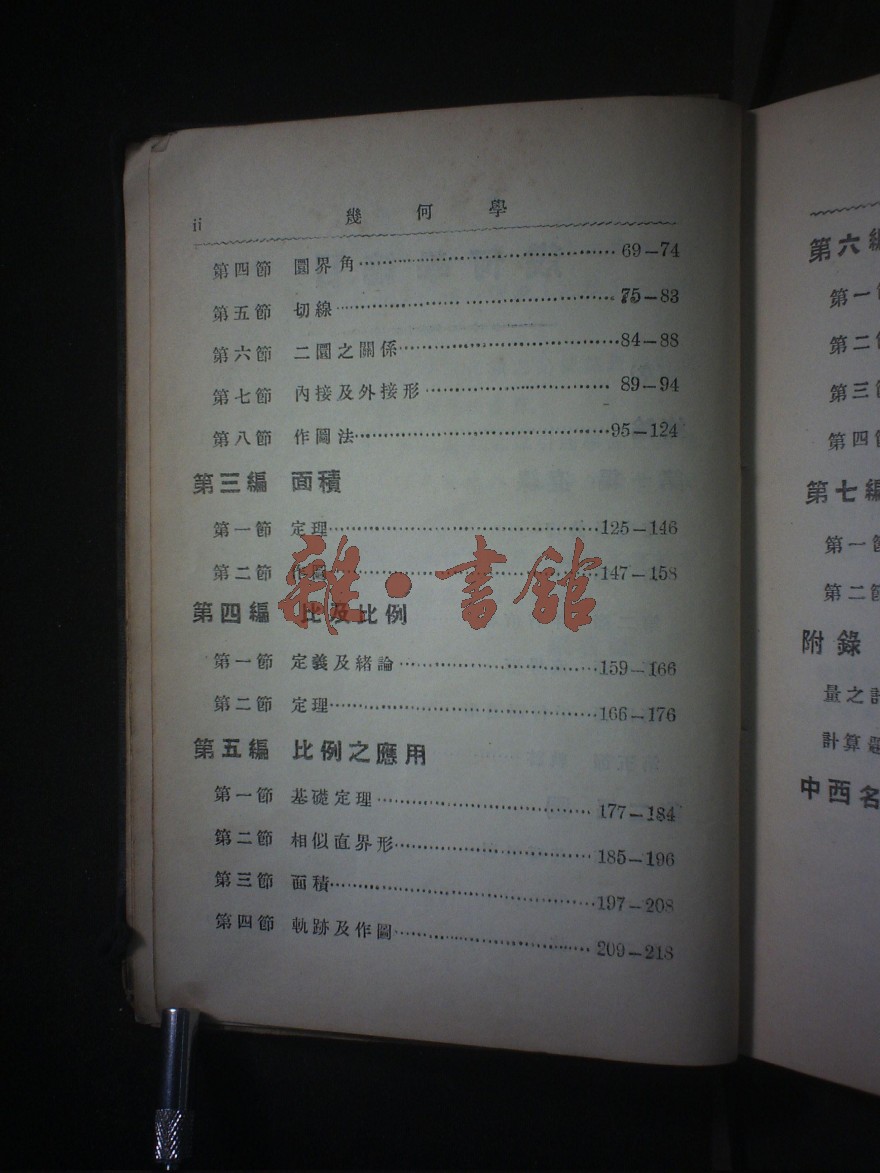 ii 幾何學
第四節 圜界角 69—74
第五節 切線 75—83
第六節 二圜之關係 84—88
第七節 內接及外接形 89—94
第八節 作圖法 95—124
第三編 面積
第一節 定理 125—146
第二節 作圖 147—158
雜·書館
第四編 比及比例
第一節 定義及緒論 159—166
第二節 定理 166—176
第五編 比例之應用
第一節 基礎定理 177—184
第二節 相似直界形 185—196
第三節 面積 197—208
第四節 軌跡及作圖 209—218
第六編
第一
第二
第三
第四
第七編
第一
第二
附錄
量之計
計算題
中西名